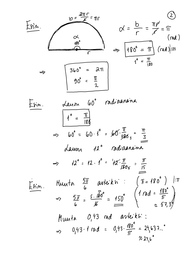 ②
Esim.
b = 2πr/2 = πr
α
180°
r
α = b/r = πr/r = π (rad)
⇒ 180° = π (rad) |:180
1° = π/180
⇒ 360° = 2π
90° = π/2
Esim. Lausu 60° radiaaneina
1° = π/180
⇒ 60° = 60 · 1° = 60 · π/180 = π/3
Lausu 12° radiaaneina
⇒ 12° = 12 · 1° = 12 · π/180 = π/15
Esim. Muuta 5π/6 asteiksi : (π = 180°) |:π
⇒ 5π/6 = 5·180°/6 = 150° (1 rad = 180°/π ≈ 57,3°)
Muuta 0,43 rad asteiksi :
⇒ 0,43 · 1 rad = 0,43 · 180°/π = 24,637..°
≈ 24,6°